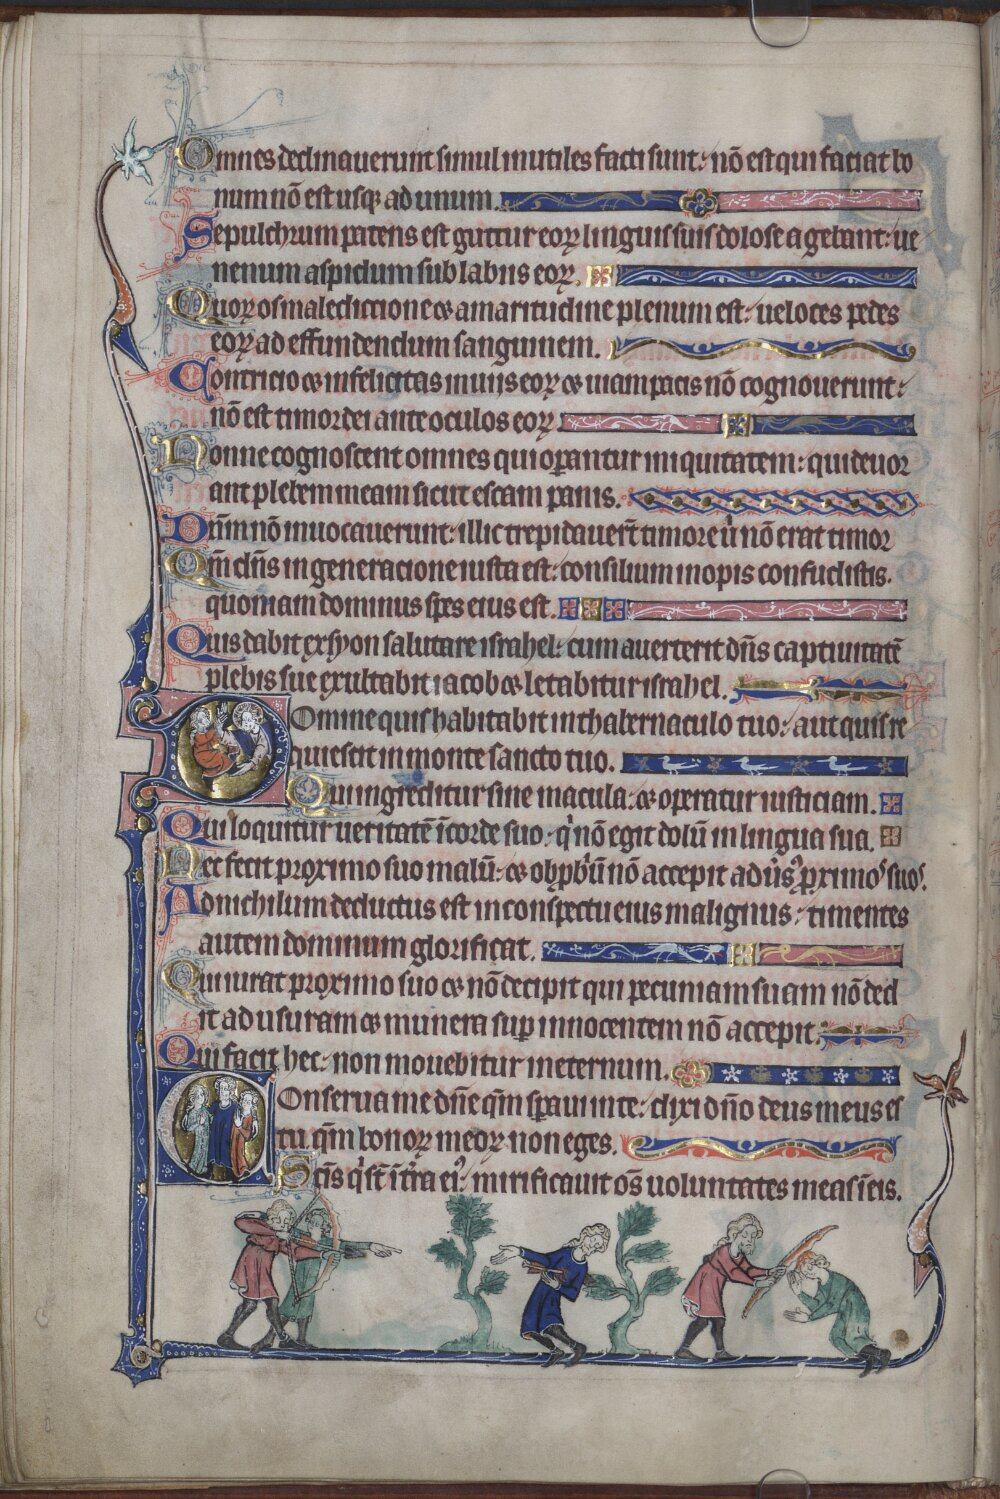 Omnes declinauerunt simul inutiles facti sunt: nō est qui faciat bo
num nō est usqꝫ ad unum.
Sepulchrum patens est guttur eoꝝ linguis suis dolose agebant: ue
nenum aspidum sub labiis eoꝝ.
Quoꝝ os malediccione ⁊ amaritudine plenum est: ueloces pedes
eoꝝ ad effundendum sanguinem.
Contricio ⁊ infelicitas in uiis eoꝝ ⁊ uiam pacis nō cognouerunt:
nō est timor dei ante oculos eoꝝ
Nonne cognoscent omnes qui oꝑantur iniquitatem: qui deuor
ant plebem meam sicut escam panis.
Dūm nō inuocauerunt: illic trepidauer̄t timore u̇ nō erat timor
Qm̄ dn̄s in generacione iusta est: consilium inopis confudistis.
quoniam dominus sp̄es eius est.
Quis dabit ex syon salutare israhel: cum auerterit dn̄s captiuitatē
plebis sue exultabit iacob ⁊ letabitur israhel.
Domine quis habitabit in thabernaculo tuo: aut quis re
quiescit in monte sancto tuo.
Qui ingreditur sine macula: ⁊ operatur iusticiam.
Qui loquitur ueritatē ī corde suo: q̇ nō egit dolū in lingua sua.
Nec fecit proximo suo malū: ⁊ obpb̄ū nō accepit adūsꝰ ꝓximos suos.
Ad nichilum deductus est in conspectu eius malignus: timentes
autem dominum glorificat.
Qui iurat proximo suo ⁊ nō decipit qui pecuniam suam nō ded
it ad usuram ⁊ munera suꝑ innocentem nō accepit.
Qui facit hec: non mouebitur in eternum.
Conserua me dn̄e qm̄ sꝑaui in te: dixi dn̄o deus meus es
tu qm̄ bonoꝝ meoꝝ non eges.
Sc̄is q̇ sт̄ ī t̄ra eiꝰ: mirificauit om̄s uoluntates meas ī eis.